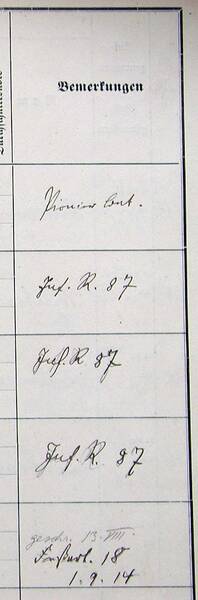 Bemerkungen
Pionier
Inf. R. 87
Inf. R. 87
Inf. R. 87
geschr. 13. VIII.
18
1. 9. 14